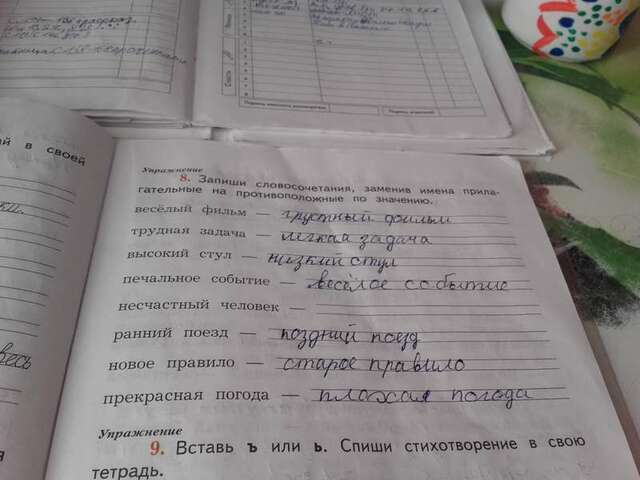 Подпись классного руководителя
Подпись родителей
ай в своей
весь
Упражнение
8. Запиши словосочетания, заменив имена прила-
гательные на противоположные по значению.
весёлый фильм — грустный фильм
трудная задача — лёгкая задача
высокий стул — низкий стул
печальное событие — весёлое событие
несчастный человек —
ранний поезд — поздний поезд
новое правило — старое правило
прекрасная погода — плохая погода
Упражнение
9. Вставь ъ или ь. Спиши стихотворение в свою
тетрадь.